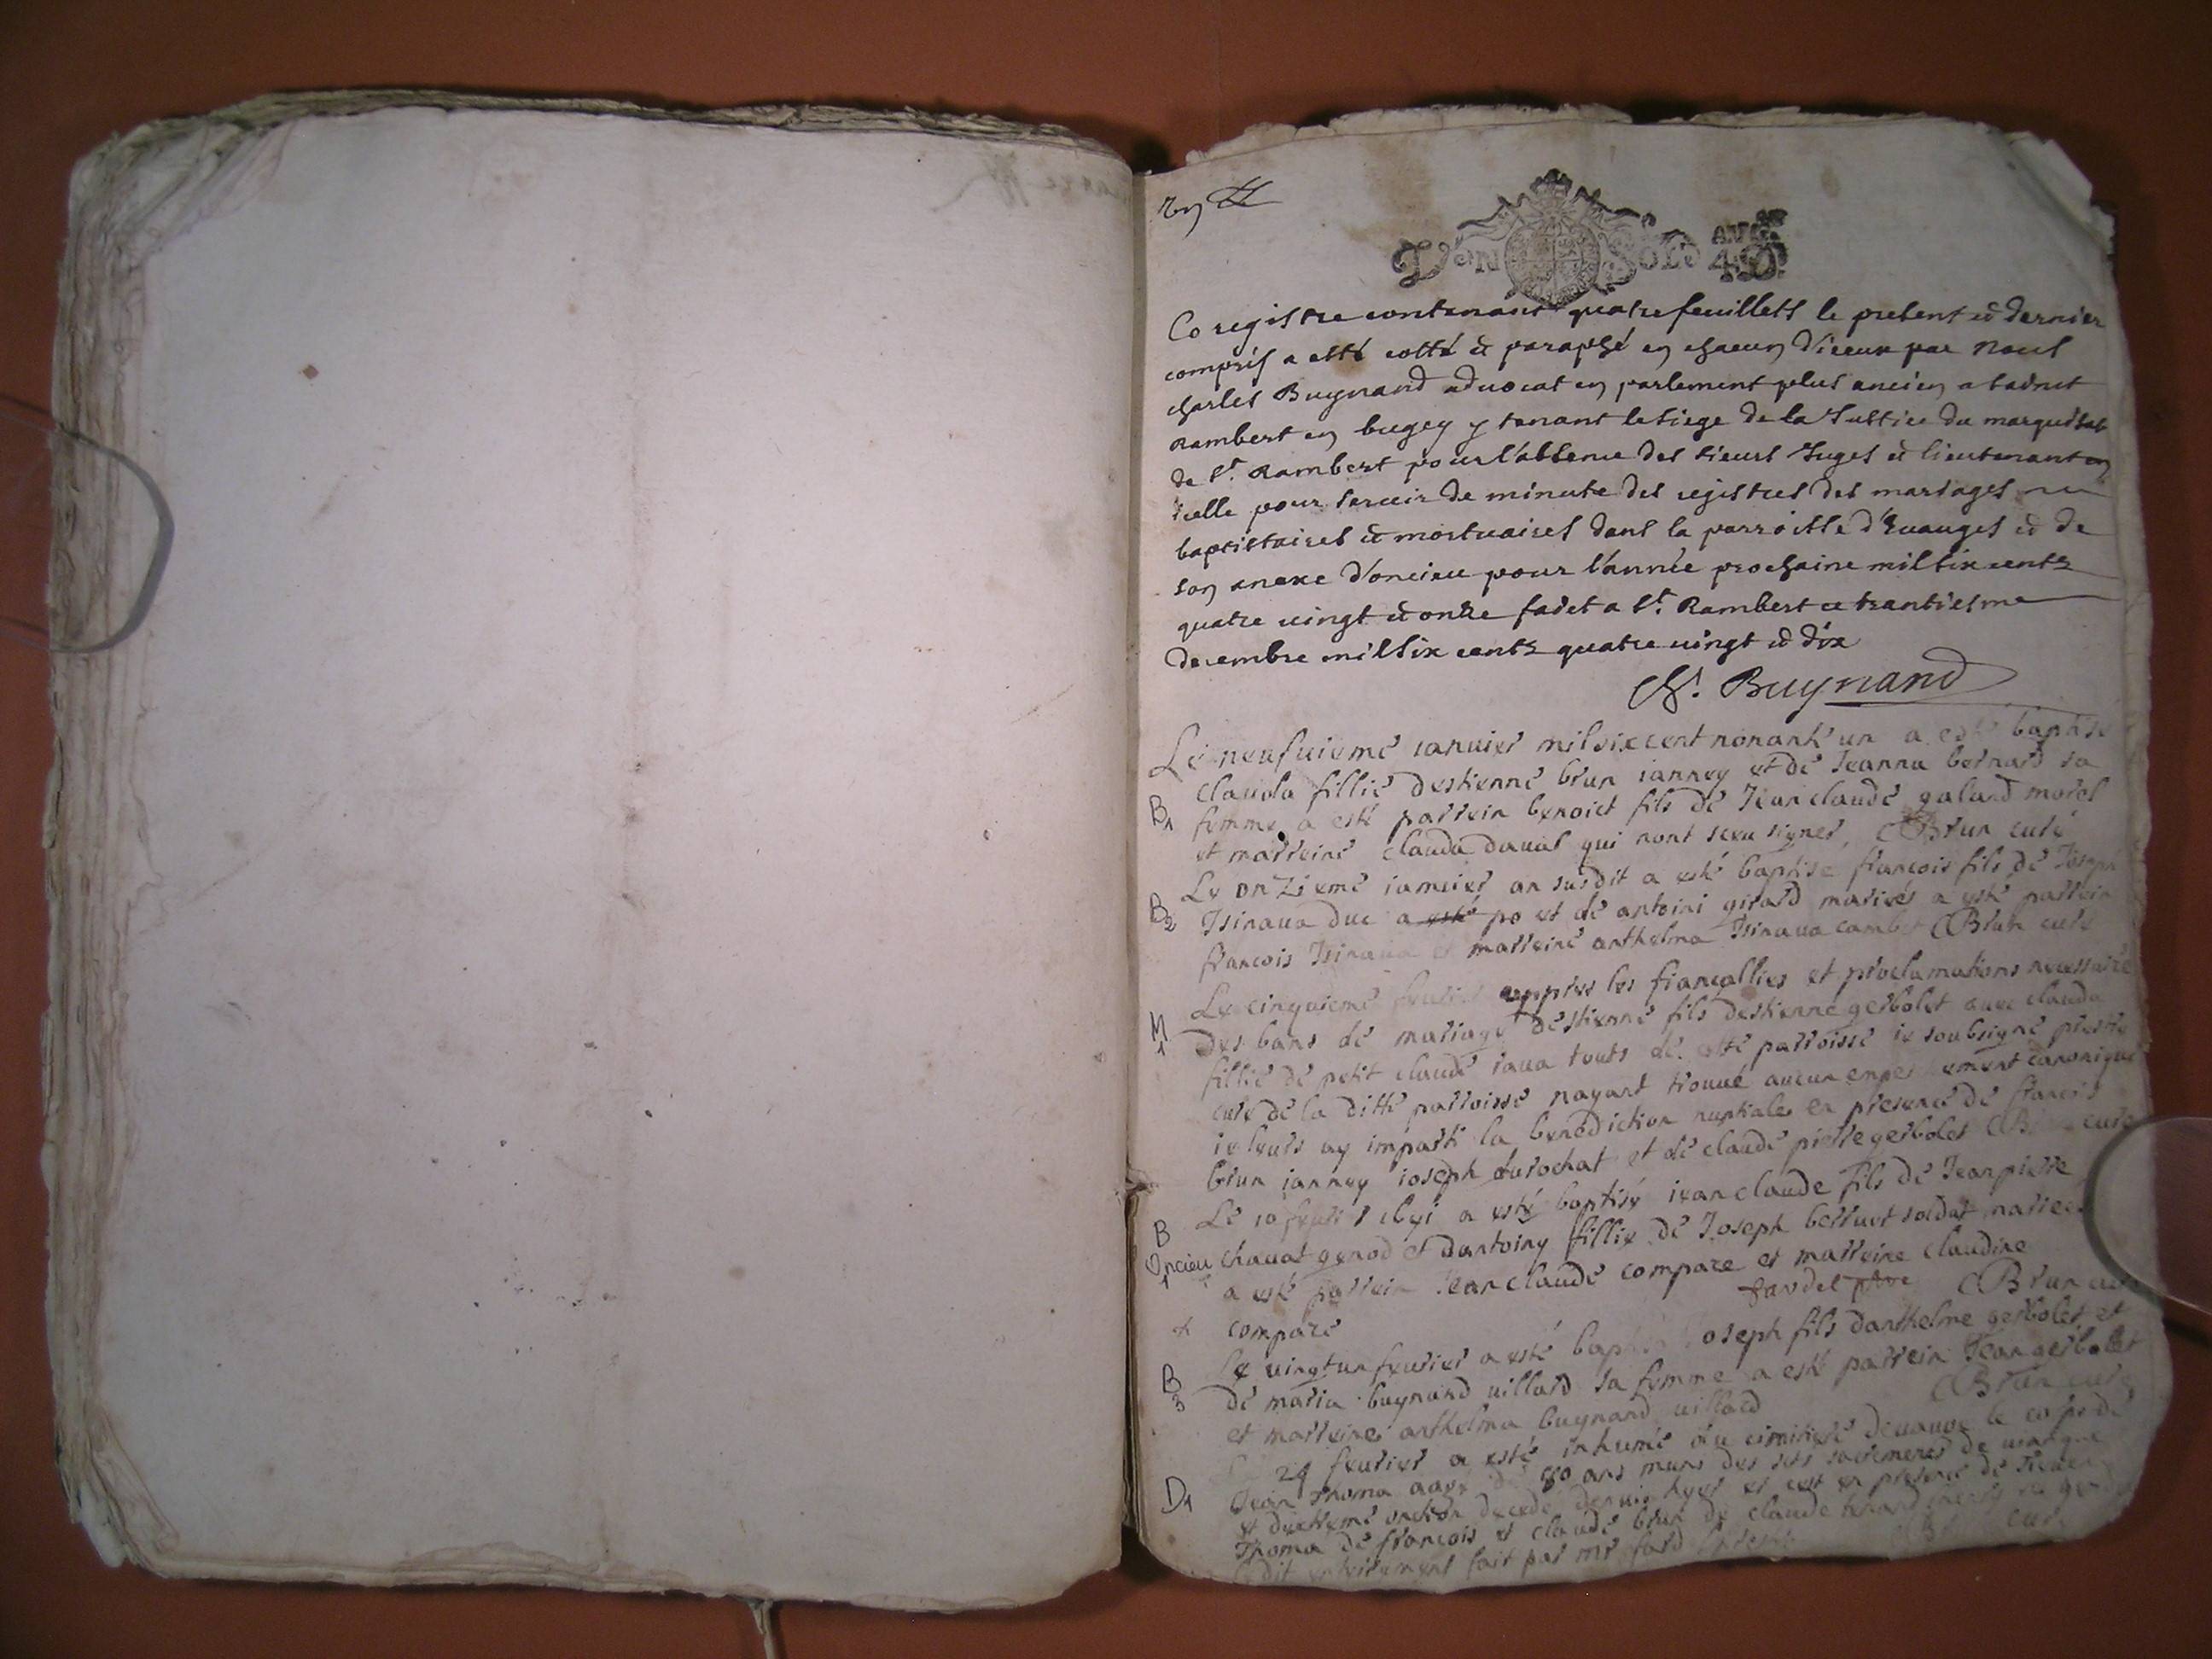 Un Sol AV 4 D.
Ce registre contenant quatre feuillets le present et dernier
compris a esté cotté et paraphé en chacun d'iceux par Nous
charles Buynand advocat en parlement plus ancien a sainct
Rambert en bugey y tenant le siege de la Justice du marquisat
de St. Rambert pour l'absence des sieurs Juges et lieutenant en
icelle pour servir de minute des registres des mariages
baptistaires et mortuaires dans la parroisse d'Euanges et de
son anexe d'oncieu pour l'année prochaine mil six cents
quatre vingt et onze faict a St. Rambert ce trantiesme
decembre mil six cents quatre vingt et dix
Ch. Buynand
Le neufuieme ianuier mil six cent nonant' un a esté baptisé
B1 Clauda fillie destienne brun ianney et de Jeanna bernard sa
femme a esté parrein benoict fils de Jean claude galard morel
et marreine clauda daual qui nont sceu signer, Brun curé
Le onzieme ianuier an susdit a esté baptise francois fils de Joseph
B2 Tsinaua duc a esté po et de antoini girard mariés a esté parrein
francois Tsinaua et marreine anthelma Tsinaua cambet Brun curé
Le cinquieme feurier appres les fiancallies et proclamations necessaire
M1 des bans de mariage destienne fils destienne gerbolet auec clauda
fillie de petit claude iaua touts de cette parroisse ie soubsigné prestre
curé de la ditte parroisse nayant trouué aucun empechement canonique
ie leurs ay imparti la benediction nuptiale en presence de francois
brun ianney ioseph durochat et de claude pierre gerbolet Brun curé
B Le 10 feurier 1691 a esté baptisé iean claude fils de Jean pierre
Oncieu 1 chauat genod et dantoiny fillie de Joseph berruet soldat mariés
a esté parrein Jean claude compare et marreine claudine
+ compare fardel ptre Brun curé
Le vingt un feurier a esté baptisé Joseph fils danthelme gerbolet et
B3 de maria buynand uillard sa femme a esté parrein Jean gerbolet
et marreine anthelma buynand uillard Brun curé
24 feurier a esté inhumé au cimitiere deuauge le corps de
D1 Jean Thoma aagé de 80 ans muni des sts sacrements de uiatique
et dextreme onction decedé depuis hyer et cest en presence de
Thoma de francois et claude brun de claude
dit enterrement fait par mr fard curé